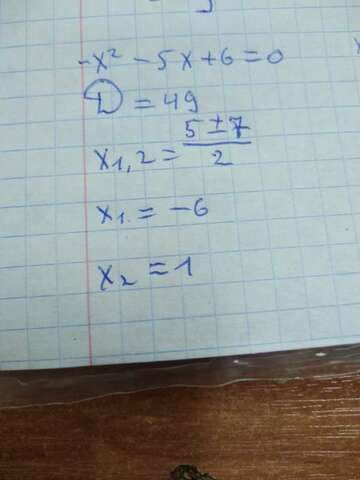 -x² - 5x + 6 = 0
D = 49
x₁,₂ = (5 ± 7)/2
x₁ = -6
x₂ = 1